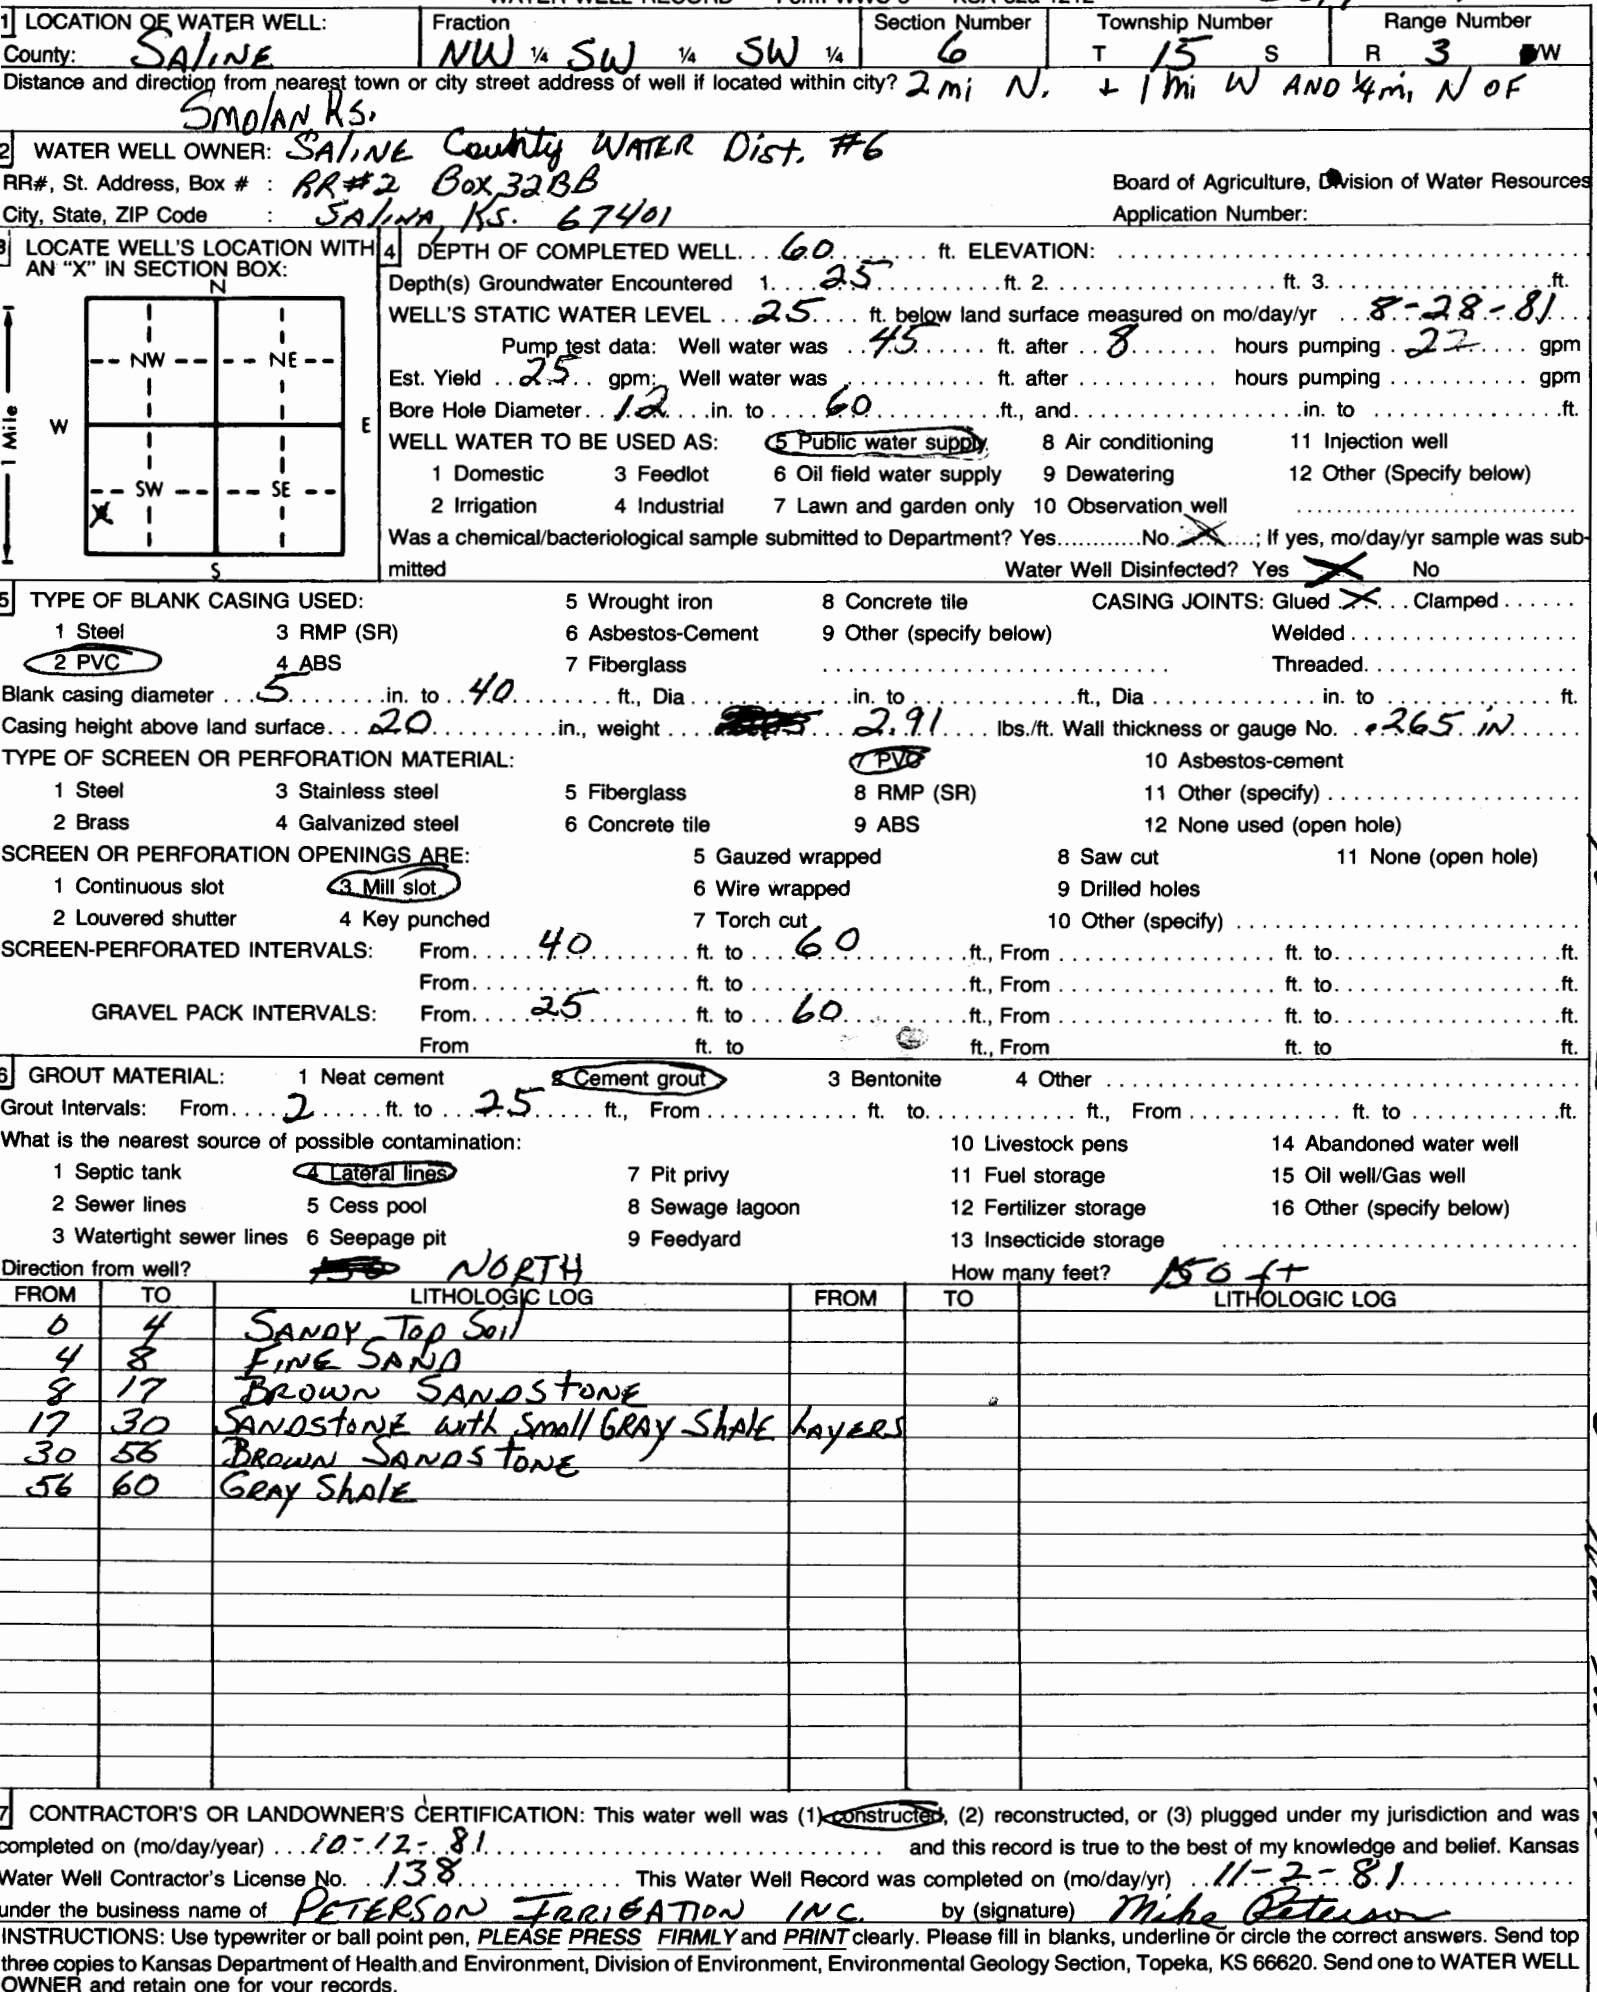 WATER WELL RECORD Form WWC-5 KSA 82a-1212
1 LOCATION OF WATER WELL: Fraction Section Number Township Number Range Number
County: SALINE NW ¼ SW ¼ SW ¼ 6 T 15 S R 3 /W
Distance and direction from nearest town or city street address of well if located within city? 2 mi N. + 1 mi W AND ¼ mi N OF
SMOLAN KS.
2 WATER WELL OWNER: SALINE County WATER Dist. #6
RR#, St. Address, Box # : RR#2 Box 32BB Board of Agriculture, Division of Water Resources
City, State, ZIP Code : SALINA, KS. 67401 Application Number:
3 LOCATE WELL'S LOCATION WITH AN "X" IN SECTION BOX:
N
NW NE
W E
SW SE
X
S
1 Mile
4 DEPTH OF COMPLETED WELL....60....... ft. ELEVATION: ........
Depth(s) Groundwater Encountered 1....25........ft. 2........ft. 3........ft.
WELL'S STATIC WATER LEVEL ...25.... ft. below land surface measured on mo/day/yr ...8-28-81...
Pump test data: Well water was ..45....... ft. after ..8....... hours pumping .22...... gpm
Est. Yield ..25.. gpm: Well water was ........ ft. after ........ hours pumping ........ gpm
Bore Hole Diameter..12....in. to....60........ft., and........in. to ........ft.
WELL WATER TO BE USED AS: 5 Public water supply 8 Air conditioning 11 Injection well
1 Domestic 3 Feedlot 6 Oil field water supply 9 Dewatering 12 Other (Specify below)
2 Irrigation 4 Industrial 7 Lawn and garden only 10 Observation well ........
Was a chemical/bacteriological sample submitted to Department? Yes........No..X....; If yes, mo/day/yr sample was sub-
mitted Water Well Disinfected? Yes X No
5 TYPE OF BLANK CASING USED: 5 Wrought iron 8 Concrete tile CASING JOINTS: Glued .X... Clamped ......
1 Steel 3 RMP (SR) 6 Asbestos-Cement 9 Other (specify below) Welded ........
2 PVC 4 ABS 7 Fiberglass ........ Threaded........
Blank casing diameter ...5........in. to ..40........ft., Dia ........in. to ........ft., Dia ........ in. to ........ ft.
Casing height above land surface...20........in., weight .... 2.91 .... lbs./ft. Wall thickness or gauge No. ..265 IN......
TYPE OF SCREEN OR PERFORATION MATERIAL: 7 PVC 10 Asbestos-cement
1 Steel 3 Stainless steel 5 Fiberglass 8 RMP (SR) 11 Other (specify) ........
2 Brass 4 Galvanized steel 6 Concrete tile 9 ABS 12 None used (open hole)
SCREEN OR PERFORATION OPENINGS ARE: 5 Gauzed wrapped 8 Saw cut 11 None (open hole)
1 Continuous slot 3 Mill slot 6 Wire wrapped 9 Drilled holes
2 Louvered shutter 4 Key punched 7 Torch cut 10 Other (specify) ........
SCREEN-PERFORATED INTERVALS: From......40........ ft. to ....60........ft., From ........ ft. to........ft.
From........ ft. to ........ft., From ........ ft. to........ft.
GRAVEL PACK INTERVALS: From.....25........ ft. to ...60........ft., From ........ ft. to........ft.
From ft. to ft., From ft. to ft.
6 GROUT MATERIAL: 1 Neat cement 2 Cement grout 3 Bentonite 4 Other ........
Grout Intervals: From....2......ft. to ...25..... ft., From ........ ft. to........ ft., From ........ ft. to ........ft.
What is the nearest source of possible contamination: 10 Livestock pens 14 Abandoned water well
1 Septic tank 4 Lateral lines 7 Pit privy 11 Fuel storage 15 Oil well/Gas well
2 Sewer lines 5 Cess pool 8 Sewage lagoon 12 Fertilizer storage 16 Other (specify below)
3 Watertight sewer lines 6 Seepage pit 9 Feedyard 13 Insecticide storage ........
Direction from well? NORTH How many feet? 150 ft
FROM TO LITHOLOGIC LOG FROM TO LITHOLOGIC LOG
0 4 SANDY Top Soil
4 8 FINE SAND
8 17 BROWN SANDSTONE
17 30 SANDSTONE with Small GRAY ShALE LAYERS
30 56 BROWN SANDSTONE
56 60 GRAY ShALE
7 CONTRACTOR'S OR LANDOWNER'S CERTIFICATION: This water well was (1) constructed, (2) reconstructed, or (3) plugged under my jurisdiction and was
completed on (mo/day/year) ...10-12-81........ and this record is true to the best of my knowledge and belief. Kansas
Water Well Contractor's License No. .138........ This Water Well Record was completed on (mo/day/yr) ..11-2-81........
under the business name of PETERSON IRRIGATION INC. by (signature) Mike Peterson
INSTRUCTIONS: Use typewriter or ball point pen, PLEASE PRESS FIRMLY and PRINT clearly. Please fill in blanks, underline or circle the correct answers. Send top
three copies to Kansas Department of Health and Environment, Division of Environment, Environmental Geology Section, Topeka, KS 66620. Send one to WATER WELL
OWNER and retain one for your records.